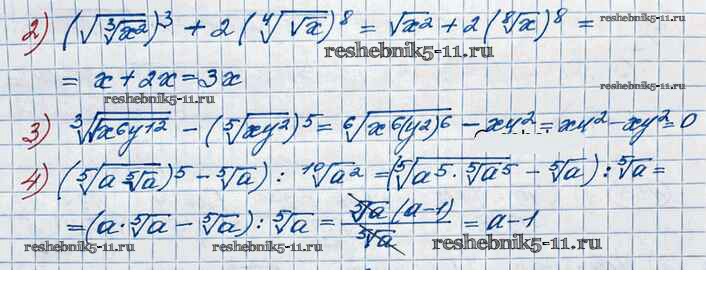 2) (√∛x²)³ + 2(⁴√√x)⁸ = √x² + 2(⁸√x)⁸ =
reshebnik5-11.ru
reshebnik5-11.ru
= x + 2x = 3x
reshebnik5-11.ru
3) ∛√x⁶y¹² − (⁵√xy²)⁵ = ⁶√x⁶(y²)⁶ − xy² = xy² − xy² = 0
4) (⁵√a⁵√a)⁵ − ⁵√a) : ¹⁰√a² = (⁵√a⁵·⁵√a⁵ − ⁵√a) : ⁵√a =
= (a·⁵√a − ⁵√a) : ⁵√a = ⁵√a(a−1)/⁵√a = a−1
reshebnik5-11.ru
reshebnik5-11.ru
reshebnik5-11.ru